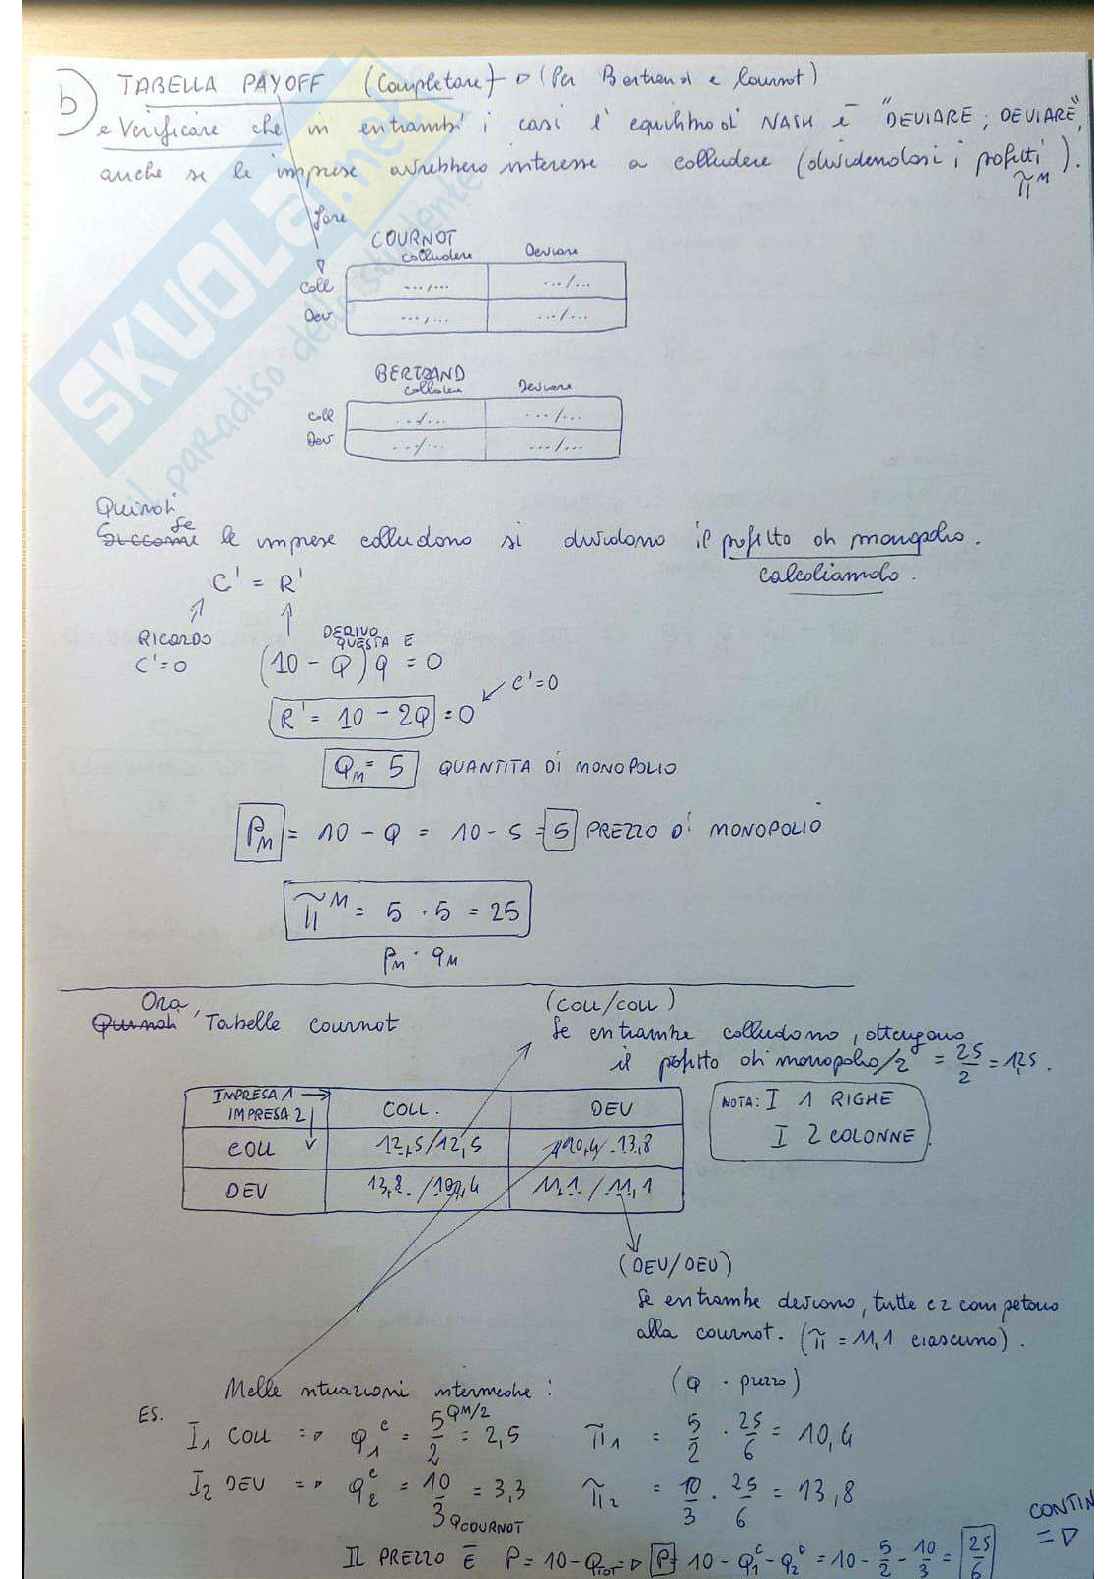 b) TABELLA PAYOFF (Completare) → (Per Bertrand e Cournot)
e Verificare che in entrambi i casi l'equilibrio di NASH è "DEVIARE; DEVIARE",
anche se le imprese avrebbero interesse a colludere (dividendosi i profitti π^M).
fare
COURNOT
colludere Deviare
Coll .../... .../...
Dev .../... .../...
BERTRAND
colludere Deviare
coll .../... .../...
Dev .../... .../...
Quindi
Siccome Se le imprese colludono si dividono il profitto di monopolio.
calcoliamolo.
C' = R'
RICORDO
C'=0
DERIVO
QUESTA E
(10 - Q) q = 0
R' = 10 - 2Q = 0 C'=0
Q_M = 5 QUANTITA DI MONOPOLIO
P_M = 10 - Q = 10 - 5 = 5 PREZZO DI MONOPOLIO
π^M = 5 · 5 = 25
P_M · q_M
Ora
Quindi, Tabelle cournot
(COLL/COLL)
Se entrambe colludono, ottengono
il profitto di monopolio/2 = 25/2 = 12,5.
IMPRESA 1 →
IMPRESA 2 ↓
COLL. DEV
COLL 12,5/12,5 10,4/13,8
DEV 13,8/10,4 11,1/11,1
NOTA: I 1 RIGHE
I 2 COLONNE
(DEV/DEV)
Se entrambe deviano, tutte e 2 competono
alla cournot. (π = 11,1 ciascuno).
Nelle situazioni intermedie: (Q · prezzo)
ES. I₁ COLL => q₁^c = 5/2 = 2,5 QM/2 π₁ = 5/2 · 25/6 = 10,4
I₂ DEV => q₂^c = 10/3 = 3,3 π₂ = 10/3 · 25/6 = 13,8
q COURNOT
IL PREZZO È P = 10 - Q_TOT → P = 10 - q₁^c - q₂^c = 10 - 5/2 - 10/3 = 25/6
CONTIN
=>
SKUOLA.net
il paradiso dello studente